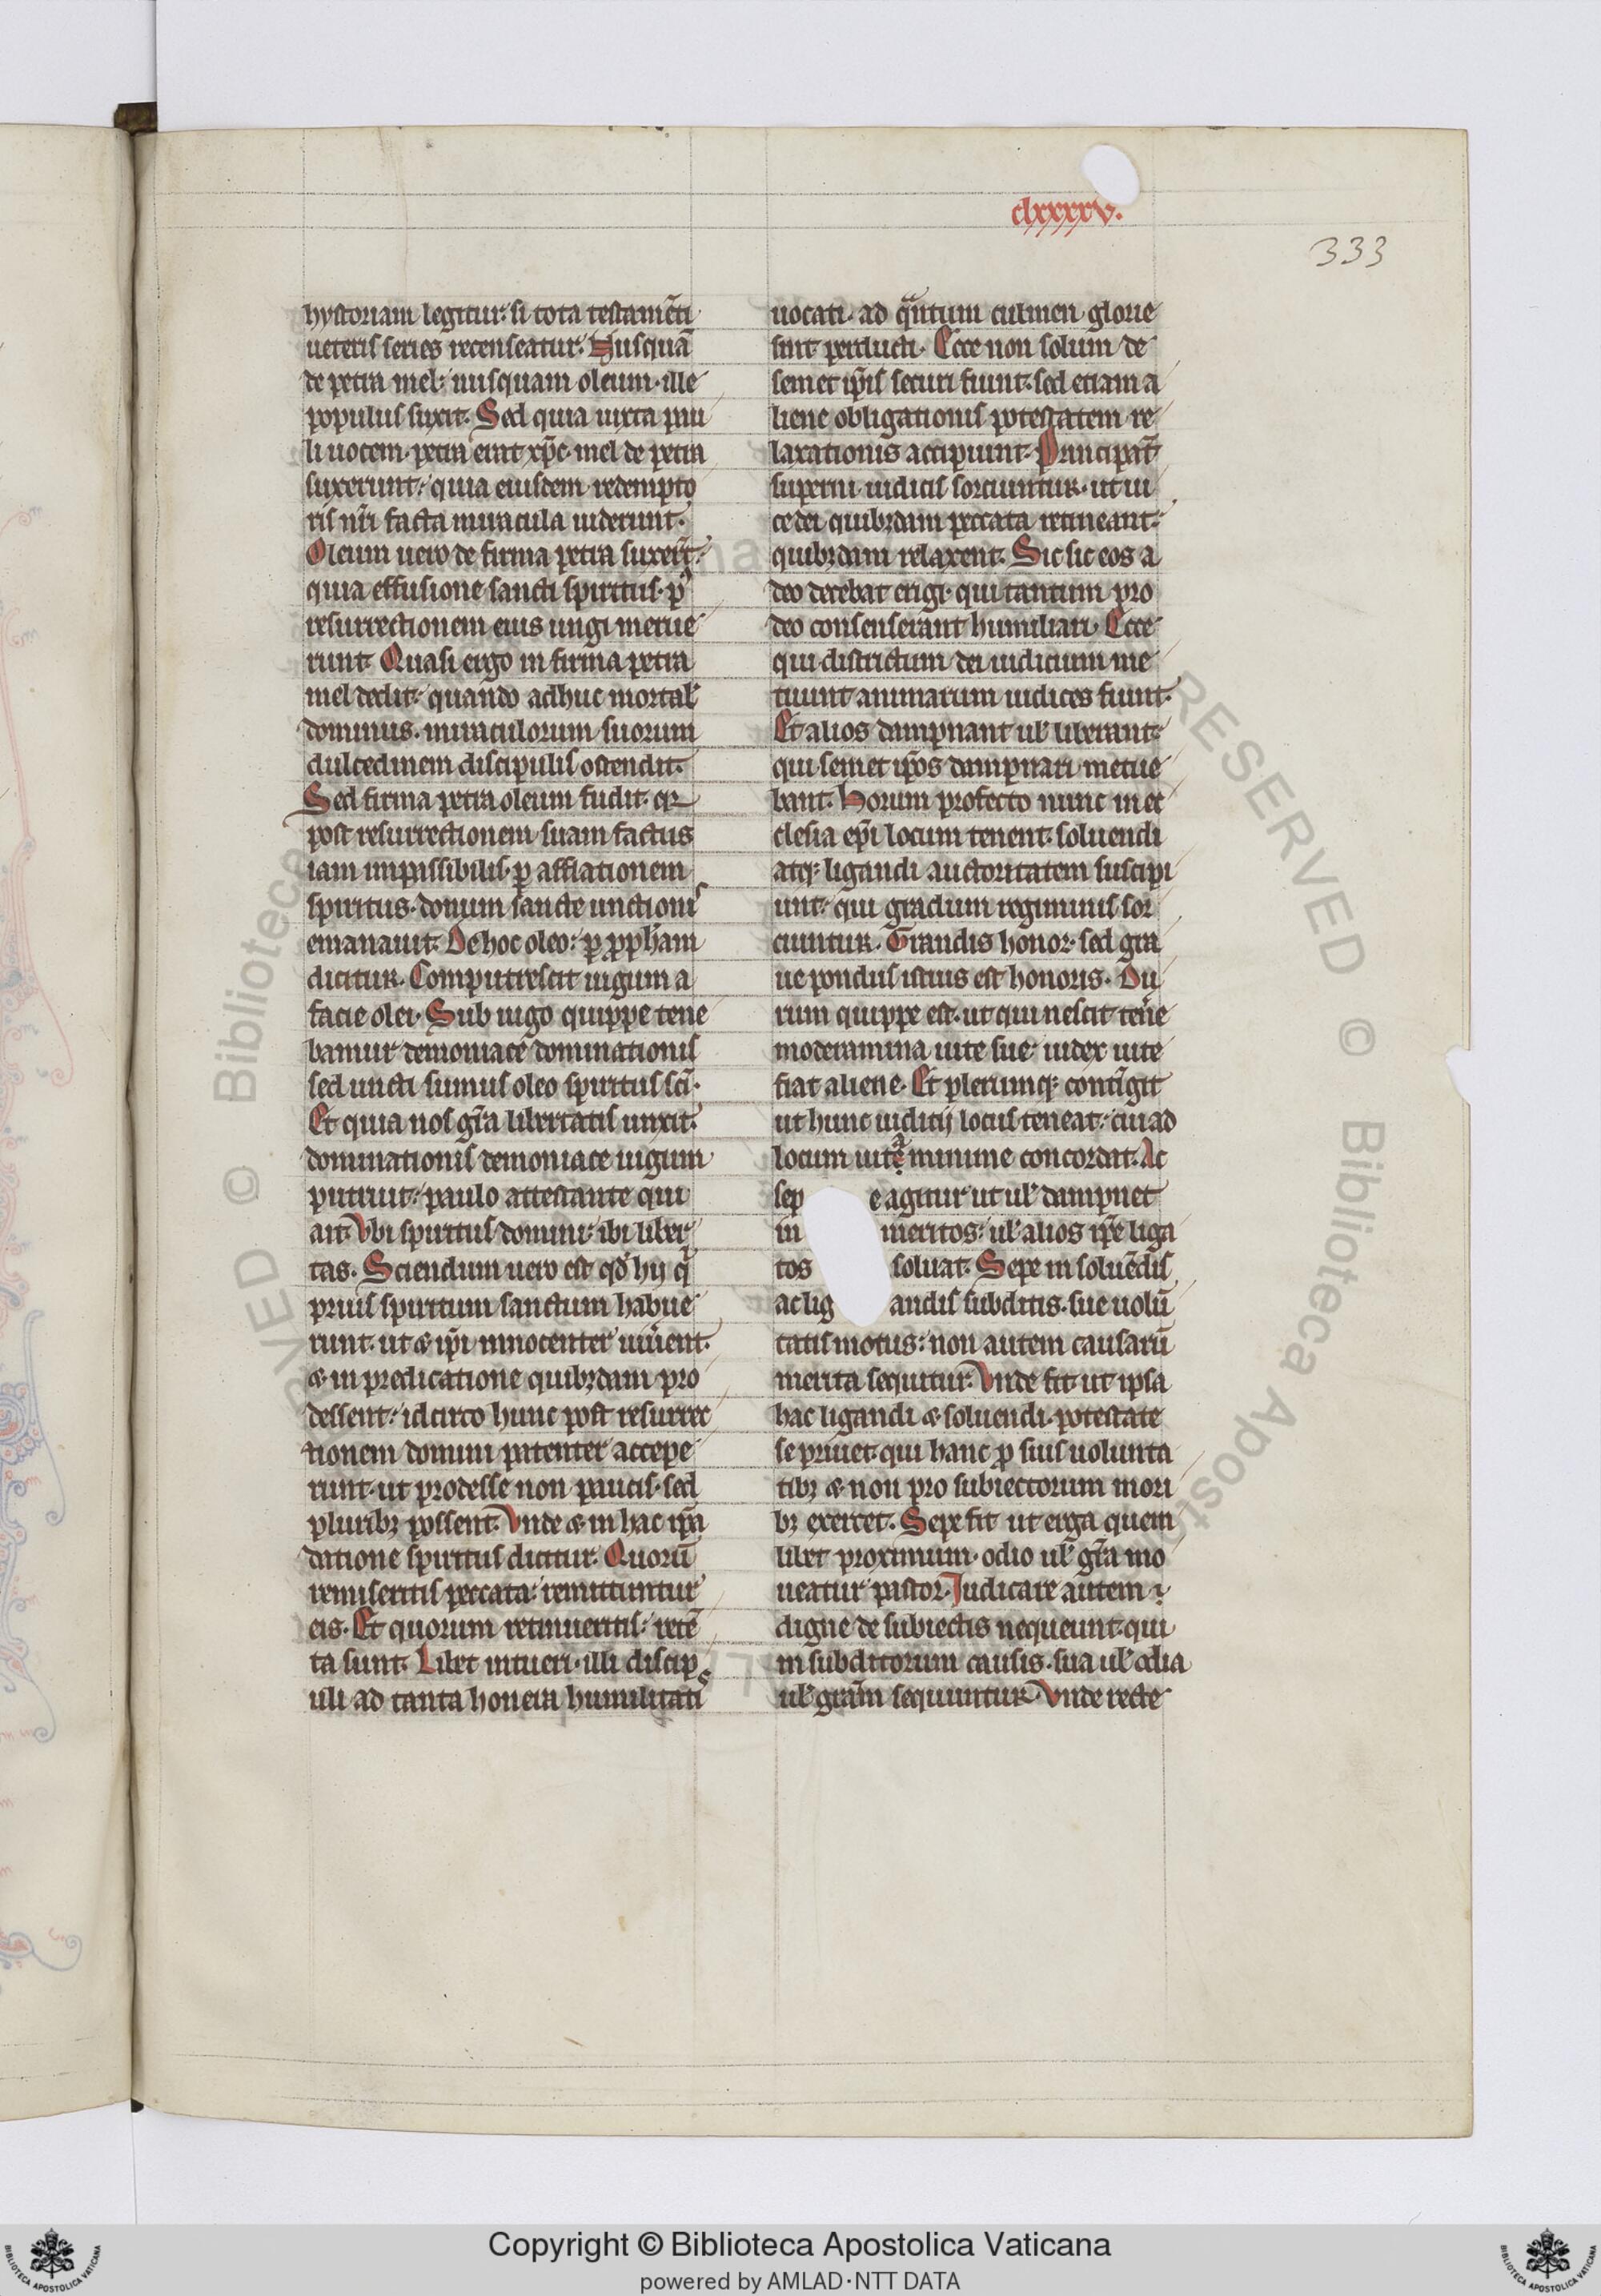 clxxxxv.
333
hystoriam legitur: si tota testam̄ti
ueteris series recenseatur. Nusquā
de petra mel: nusquam oleum ille
populus suxit. Sed quia iuxta pau
li uocem petra erat xp̄c. mel de petra
suxerunt: quia eiusdem redempto
ris nr̄i facta miracula uiderunt.
Oleum uero de firma petra suxer̄t:
quia effusione sancti spiritus. pꝰ
resurrectionem eius ungi merue
runt. Quasi ergo in firma petra
mel dedit: quando adhuc mortał
dominus. miraculorum suorum
dulcedinem discipulis ostendit.
Sed firma petra oleum fudit. qꝛ
post resurrectionem suam factus
iam impassibilis. ꝑ afflationem
spiritus. donum sancte unctionis
emanauit. De hoc oleo: ꝑ ꝓpħam
dicitur. Computrescit iugum a
facie olei. Sub iugo quippe tene
bamur demoniace dominationis
sed uncti sumus oleo spiritus sc̄i.
Et quia nos gr̄a libertatis unxit.
dominationis demoniace iugum
putruit: paulo attestante qui
ait. Vbi spiritus domini: ibi liber
tas. Sciendum uero est qđ hij q
prius spiritum sanctum habue
runt. ut & ip̄i innocenter uiu͛ent.
& in predicatione quibꝫdam pro
dessent: idcirco hunc post resurrec
tionem domini patenter accepe
runt. ut prodesse non paucis. sed
pluribꝫ possent. Vnde & in hac ip̄a
datione spiritus dicitur. Quorū
remiseritis peccata: remittuntur
eis. Et quorum retinueritis: retē
ta sunt. Libet intueri. illi discip
uli ad tanta honera humilitatis
uocati. ad qͣntum culmen glorie
sint perducti. Ecce non solum de
semet ip̄is securi fiunt. sed etiam a
liene obligationis potestatem re
laxationis accipiunt. Principat̄
superni iudicis sorciuntur. ut ui
ce dei quibꝫdam peccata retineant:
quibꝫdam relaxent. Sic sic eos a
deo decebat erigi. qui tantum pro
deo consenserant humiliari. Ecce
qui districtum dei iudicium me
tuunt animarum iudices fiunt.
Et alios dampnant uł liberant:
qui semet ip̄os dampnari metue
bant. Horum profecto nunc in ec
clesia ep̄i locum tenent. soluendi
atqꝫ ligandi auctoritatem suscipi
unt: qui gradum regiminis sor
ciuntur. Grandis honor. sed gra
ue pondus istius est honoris. Du
rum quippe est. ut qui nescit ten͛e
moderamina uite sue: iudex uite
fiat aliene. Et plerumqꝫ contīgit
ut hunc iudicij locus teneat: cui ad
locum uitͣẹ minime concordat. Ac
sep e agitur ut uł dampnet
in meritos: uł alios ip̄e liga
tos soluat. Sepe in soluēdis
ac lig andis subditis. sue uolū
tatis motus: non autem causarū
merita sequitur. Vnde fit ut ipsa
hac ligandi & soluendi potestate
se priuet. qui hanc ꝓ suis uolunta
tibꝫ & non pro subiectorum mori
bꝫ exercet. Sepe fit ut erga quem
libet proximum. odio uł gr̄a mo
ueatur pastor. Iudicare autem
digne de subiectis nequeunt. qui
in subditorum causis. sua uł odia
uł grām sequuntur. Vnde recte
Copyright © Biblioteca Apostolica Vaticana
powered by AMLAD·NTT DATA